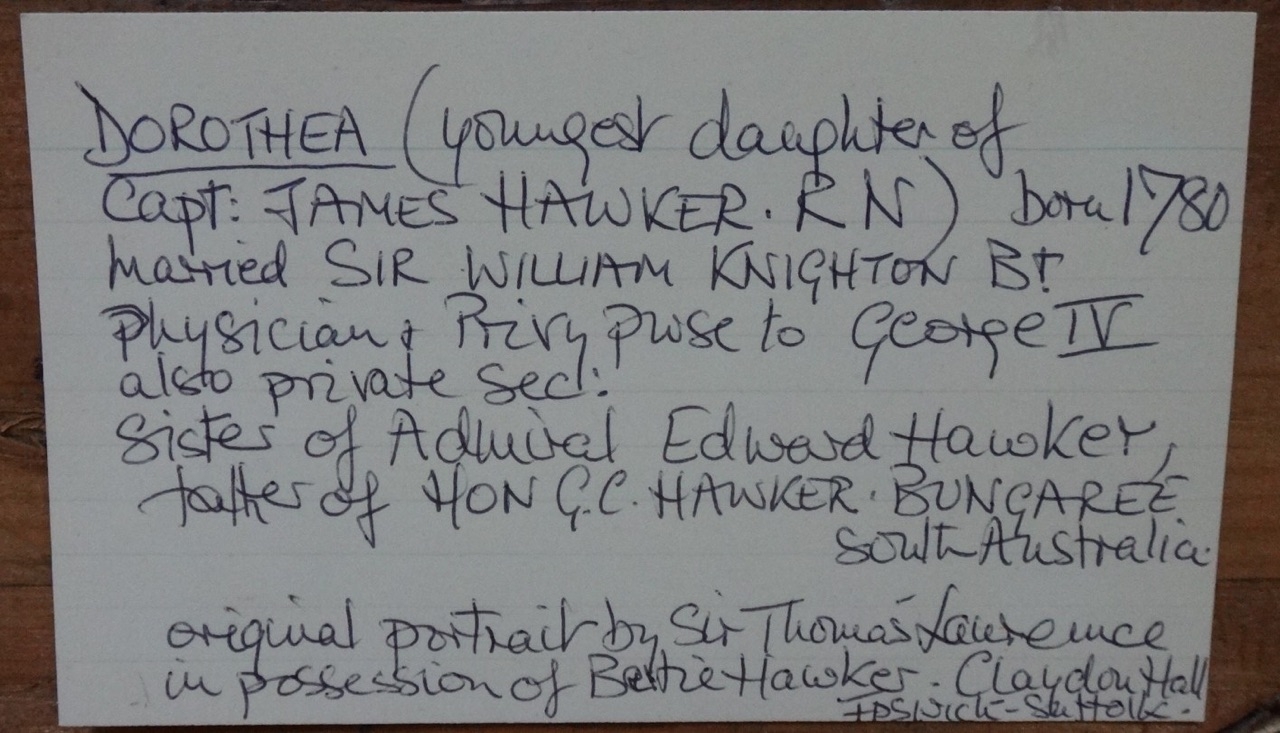 DOROTHEA (youngest daughter of
Capt: JAMES HAWKER. RN) born 1780
married SIR WILLIAM KNIGHTON Bt
physician & Privy purse to George IV
also private Sec:
Sister of Admiral Edward Hawker,
father of HON G.C. HAWKER. BUNGAREE
South Australia.
original portrait by Sir Thomas Lawrence
in possession of Bertie Hawker. Claydon Hall
IPSWICH - Suffolk.